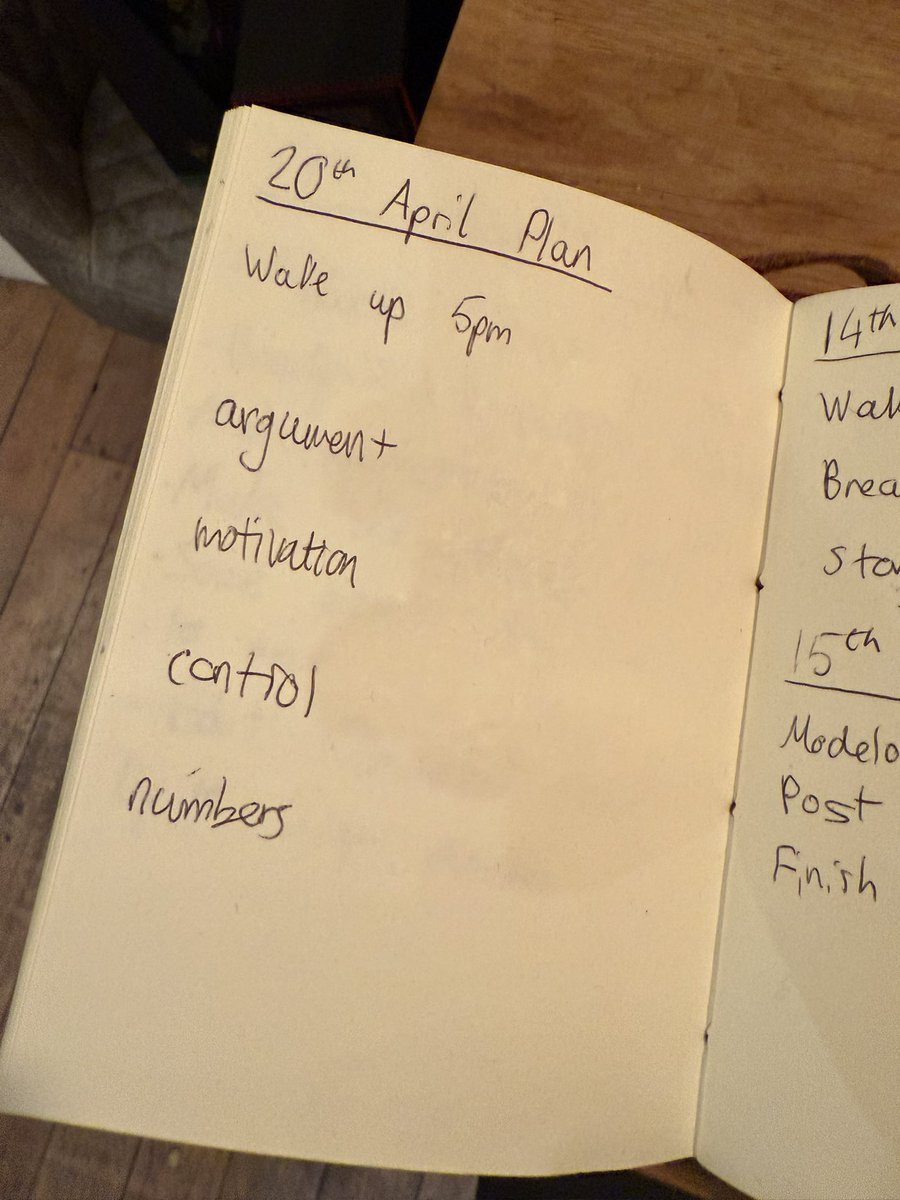 20th April Plan
Wake up 5pm
argument
motivation
control
numbers
14th
Wak
Brea
Sta
15th
Modelo
Post
Finish